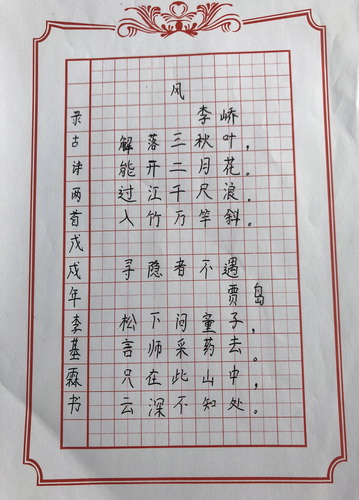 风
李峤
解落三秋叶，
能开二月花。
过江千尺浪。
入竹万竿斜。
寻隐者不遇
贾岛
松下问童子，
言师采药去。
只在此山中，
云深不知处。
录古诗两首戊戌年李基霖书